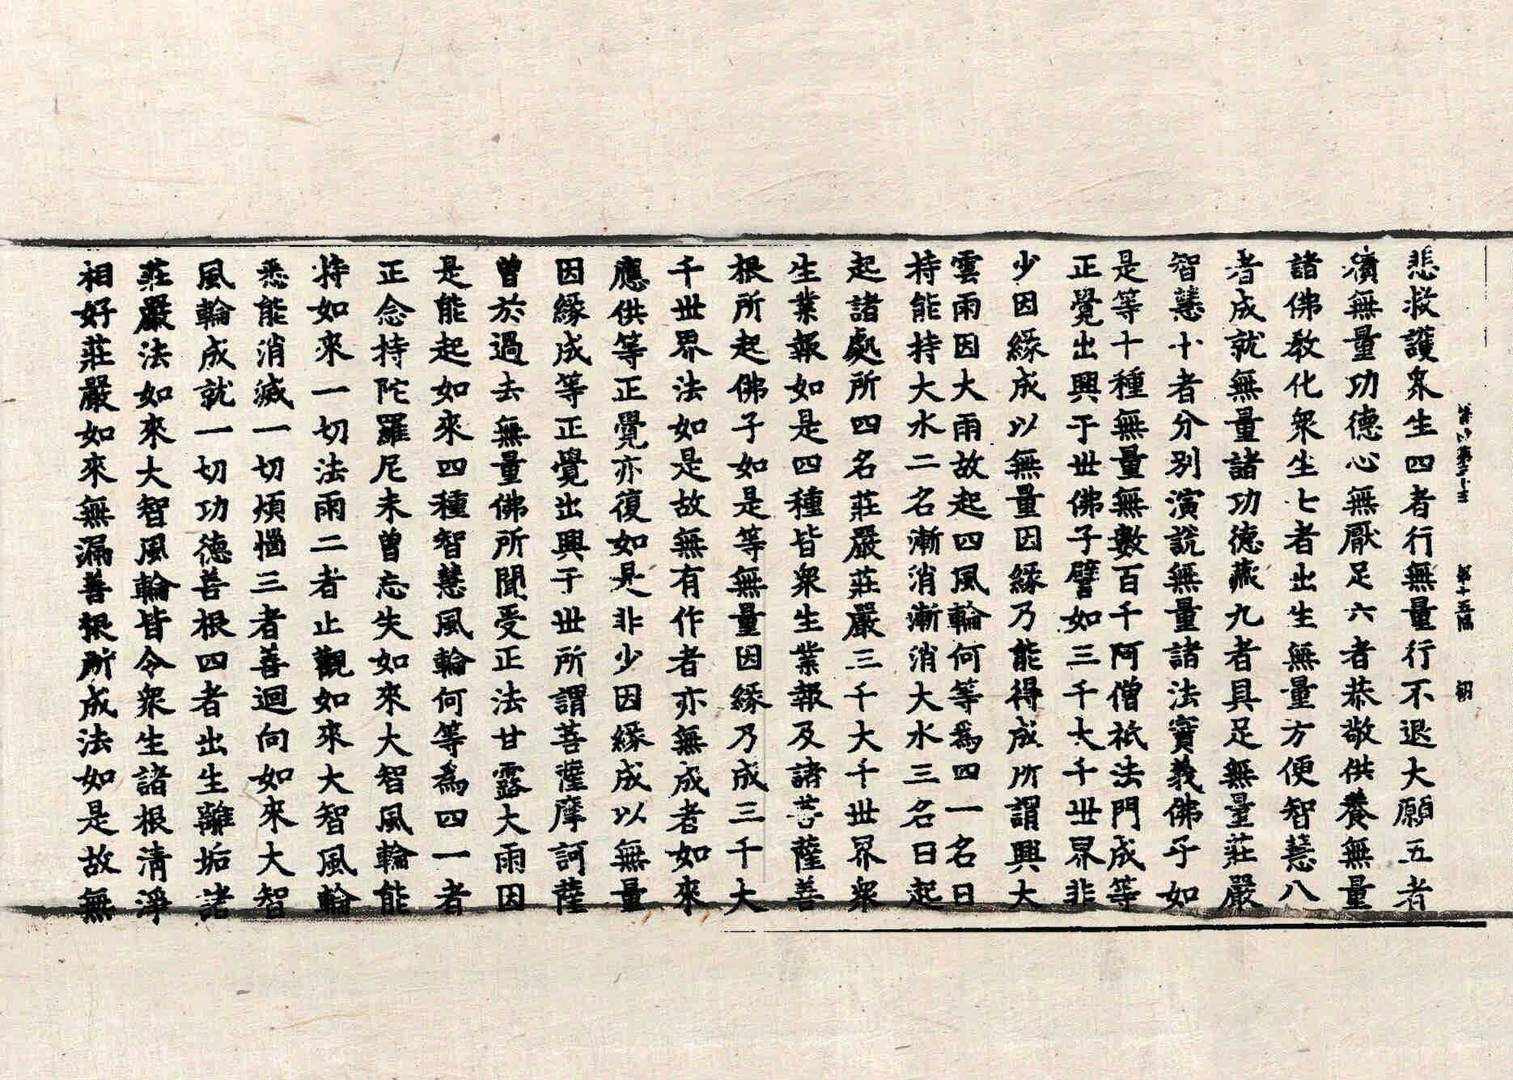 悲救護衆生四者行無量行不退大願五者
積無量功德心無厭足六者恭敬供養無量
諸佛教化衆生七者出生無量方便智慧八
者成就無量諸功德藏九者具足無量莊嚴
智慧十者分別演說無量諸法實義佛子如
是等十種無量無數百千阿僧祇法門成等
正覺出興于世佛子譬如三千大千世界非
少因緣成以無量因緣乃能得成所謂興大
雲雨因大雨故起四風輪何等為四一名曰
持能持大水二名漸消漸消大水三名曰起
起諸處所四名莊嚴莊嚴三千大千世界衆
生業報如是四種皆衆生業報及諸菩薩善
根所起佛子如是等無量因緣乃成三千大
千世界法如是故無有作者亦無成者如來
應供等正覺亦復如是非少因緣成以無量
因緣成等正覺出興于世所謂菩薩摩訶薩
曾於過去無量佛所聞受正法甘露大雨因
是能起如來四種智慧風輪何等為四一者
正念持陀羅尼未曾忘失如來大智風輪能
持如來一切法雨二者止觀如來大智風輪
悉能消滅一切煩惱三者善迴向如來大智
風輪成就一切功德善根四者出生離垢諸
莊嚴法如來大智風輪皆令衆生諸根清淨
相好莊嚴如來無漏善根所成法如是故無